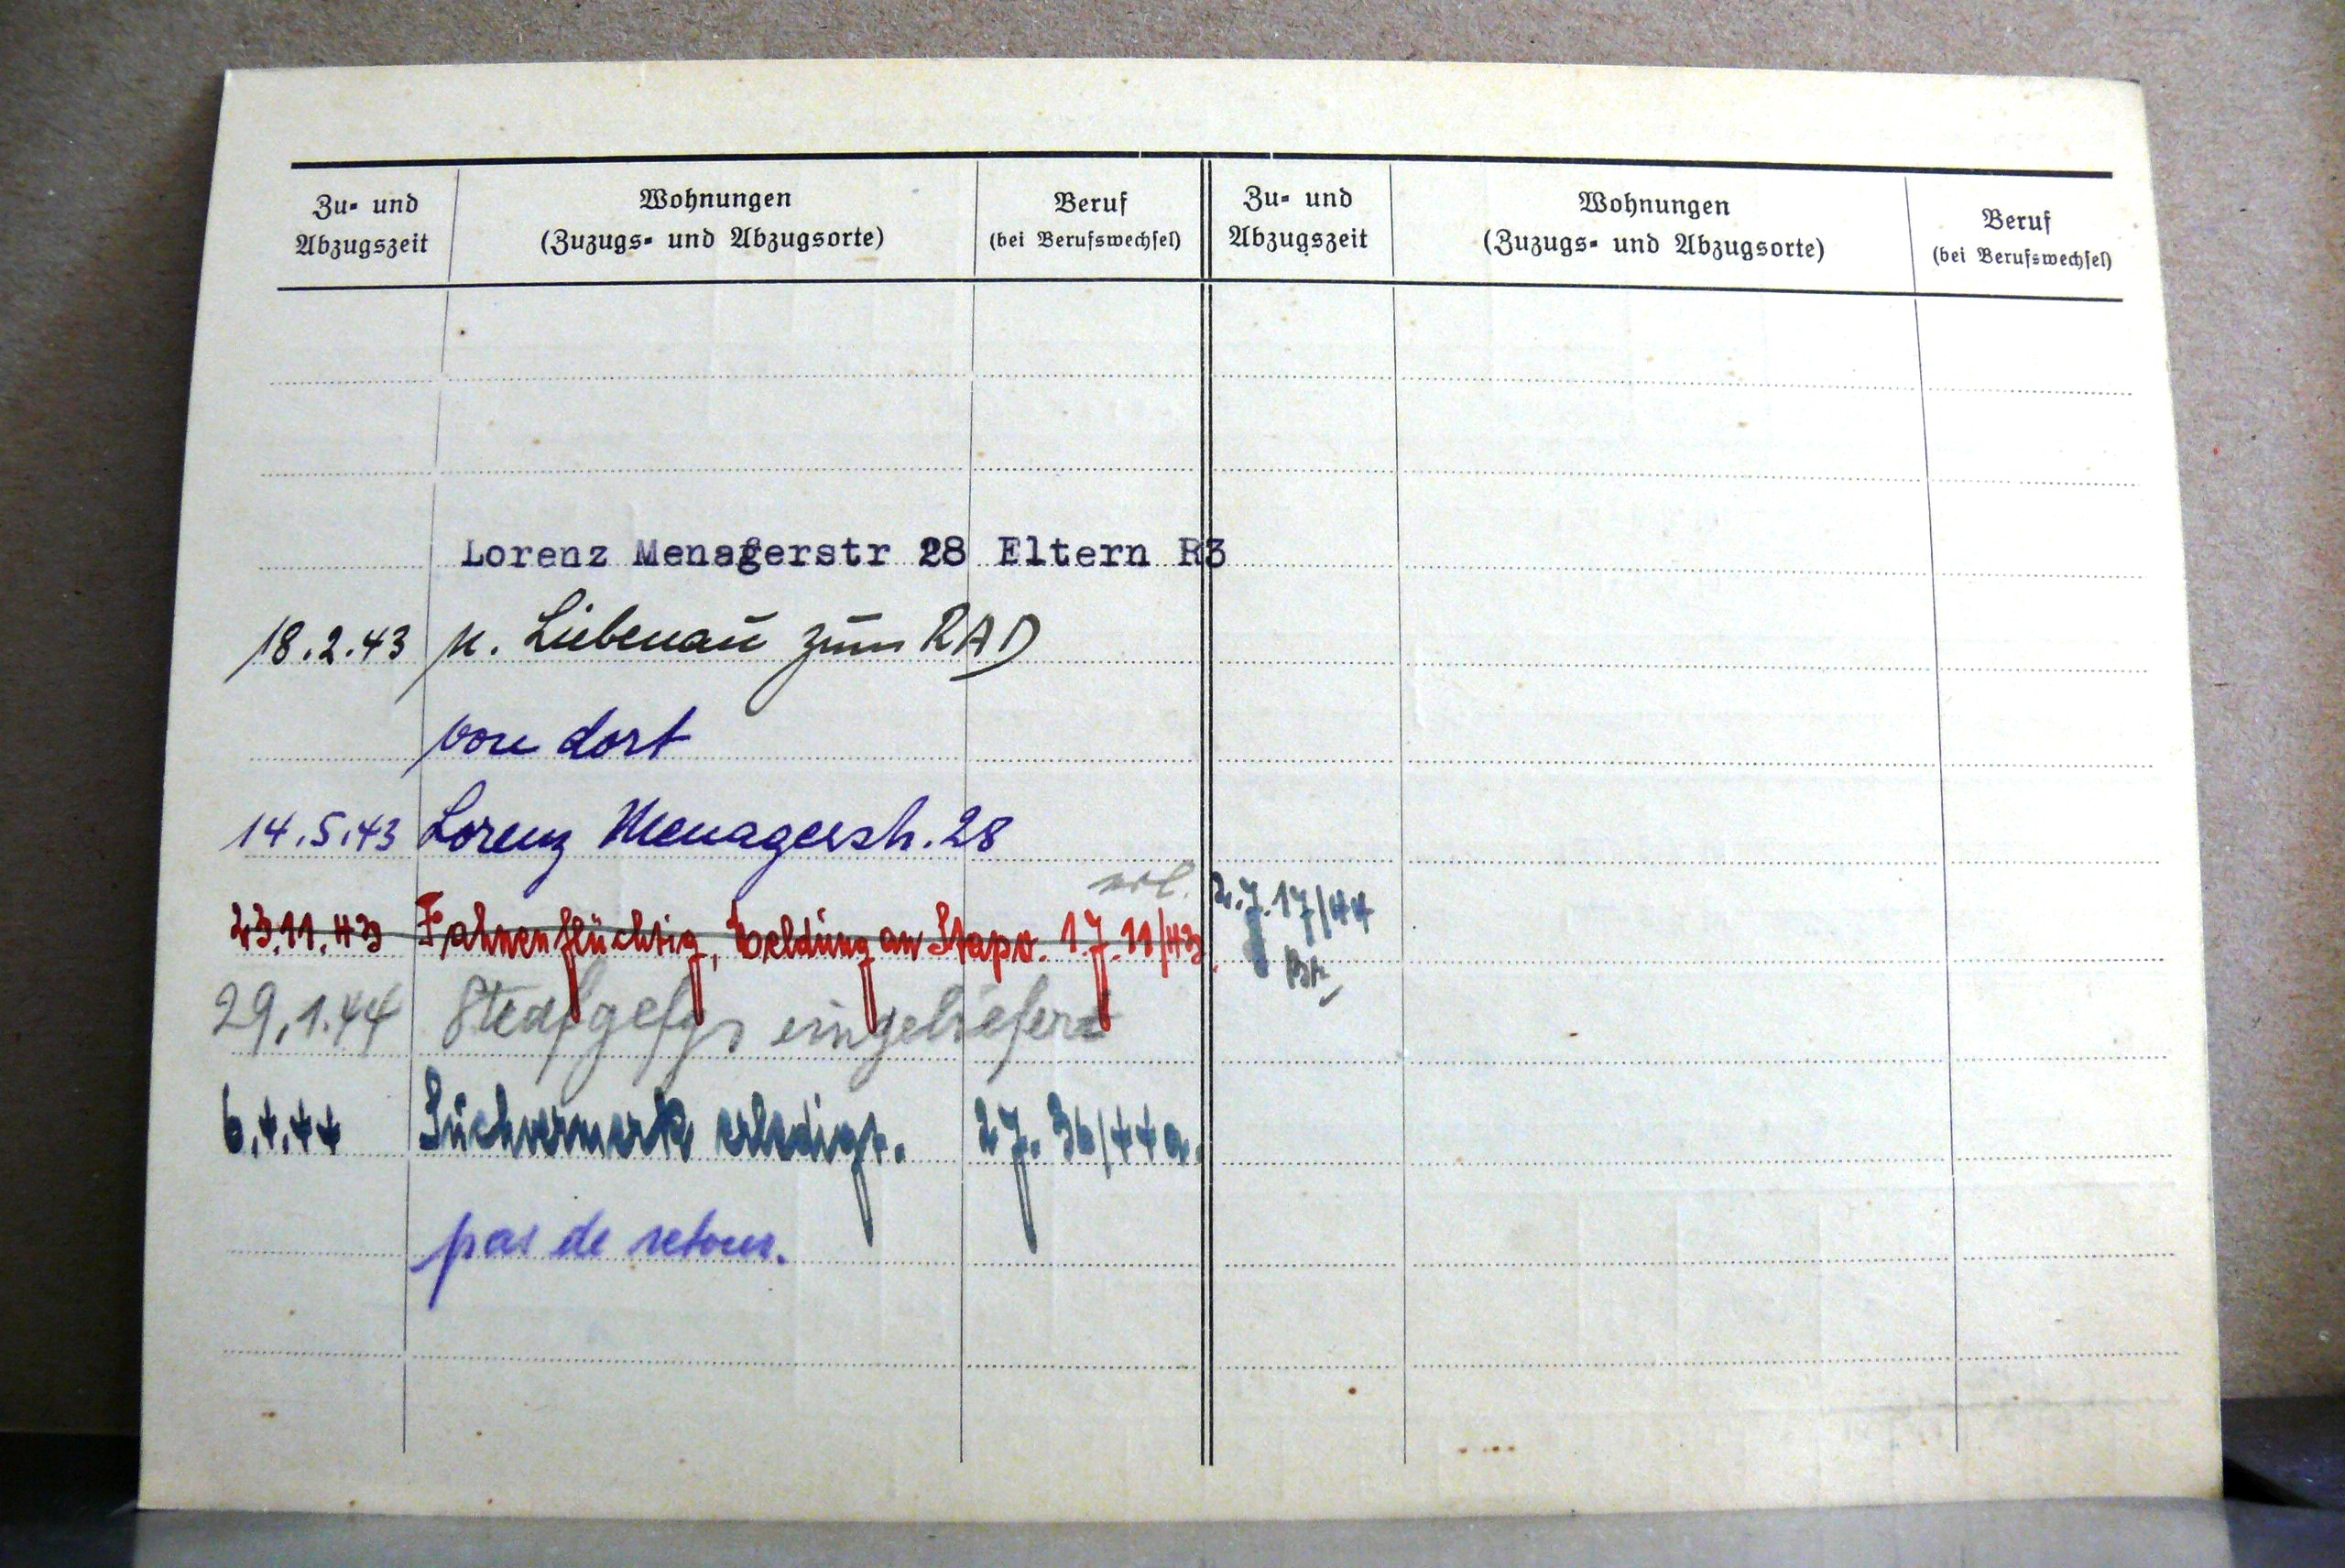 Zu- und Abzugszeit
Wohnungen
(Zuzugs- und Abzugsorte)
Beruf
(bei Berufswechsel)
Zu- und Abzugszeit
Wohnungen
(Zuzugs- und Abzugsorte)
Beruf
(bei Berufswechsel)
Lorenz Menagerstr 28 Eltern R3
18.2.43 n. Liebenau zum RAD
von dort
14.5.43 Lorenz Menagerstr. 28
erl.
23.11.43 Fahnenflüchtig, Meldung an Stapo. 1.J.11/43. 2.J.17/44
29.1.44 Strafgefgs eingeliefert
6.4.44 Suchvermerk erledigt. 2J. 36/44a.
pas de retour.